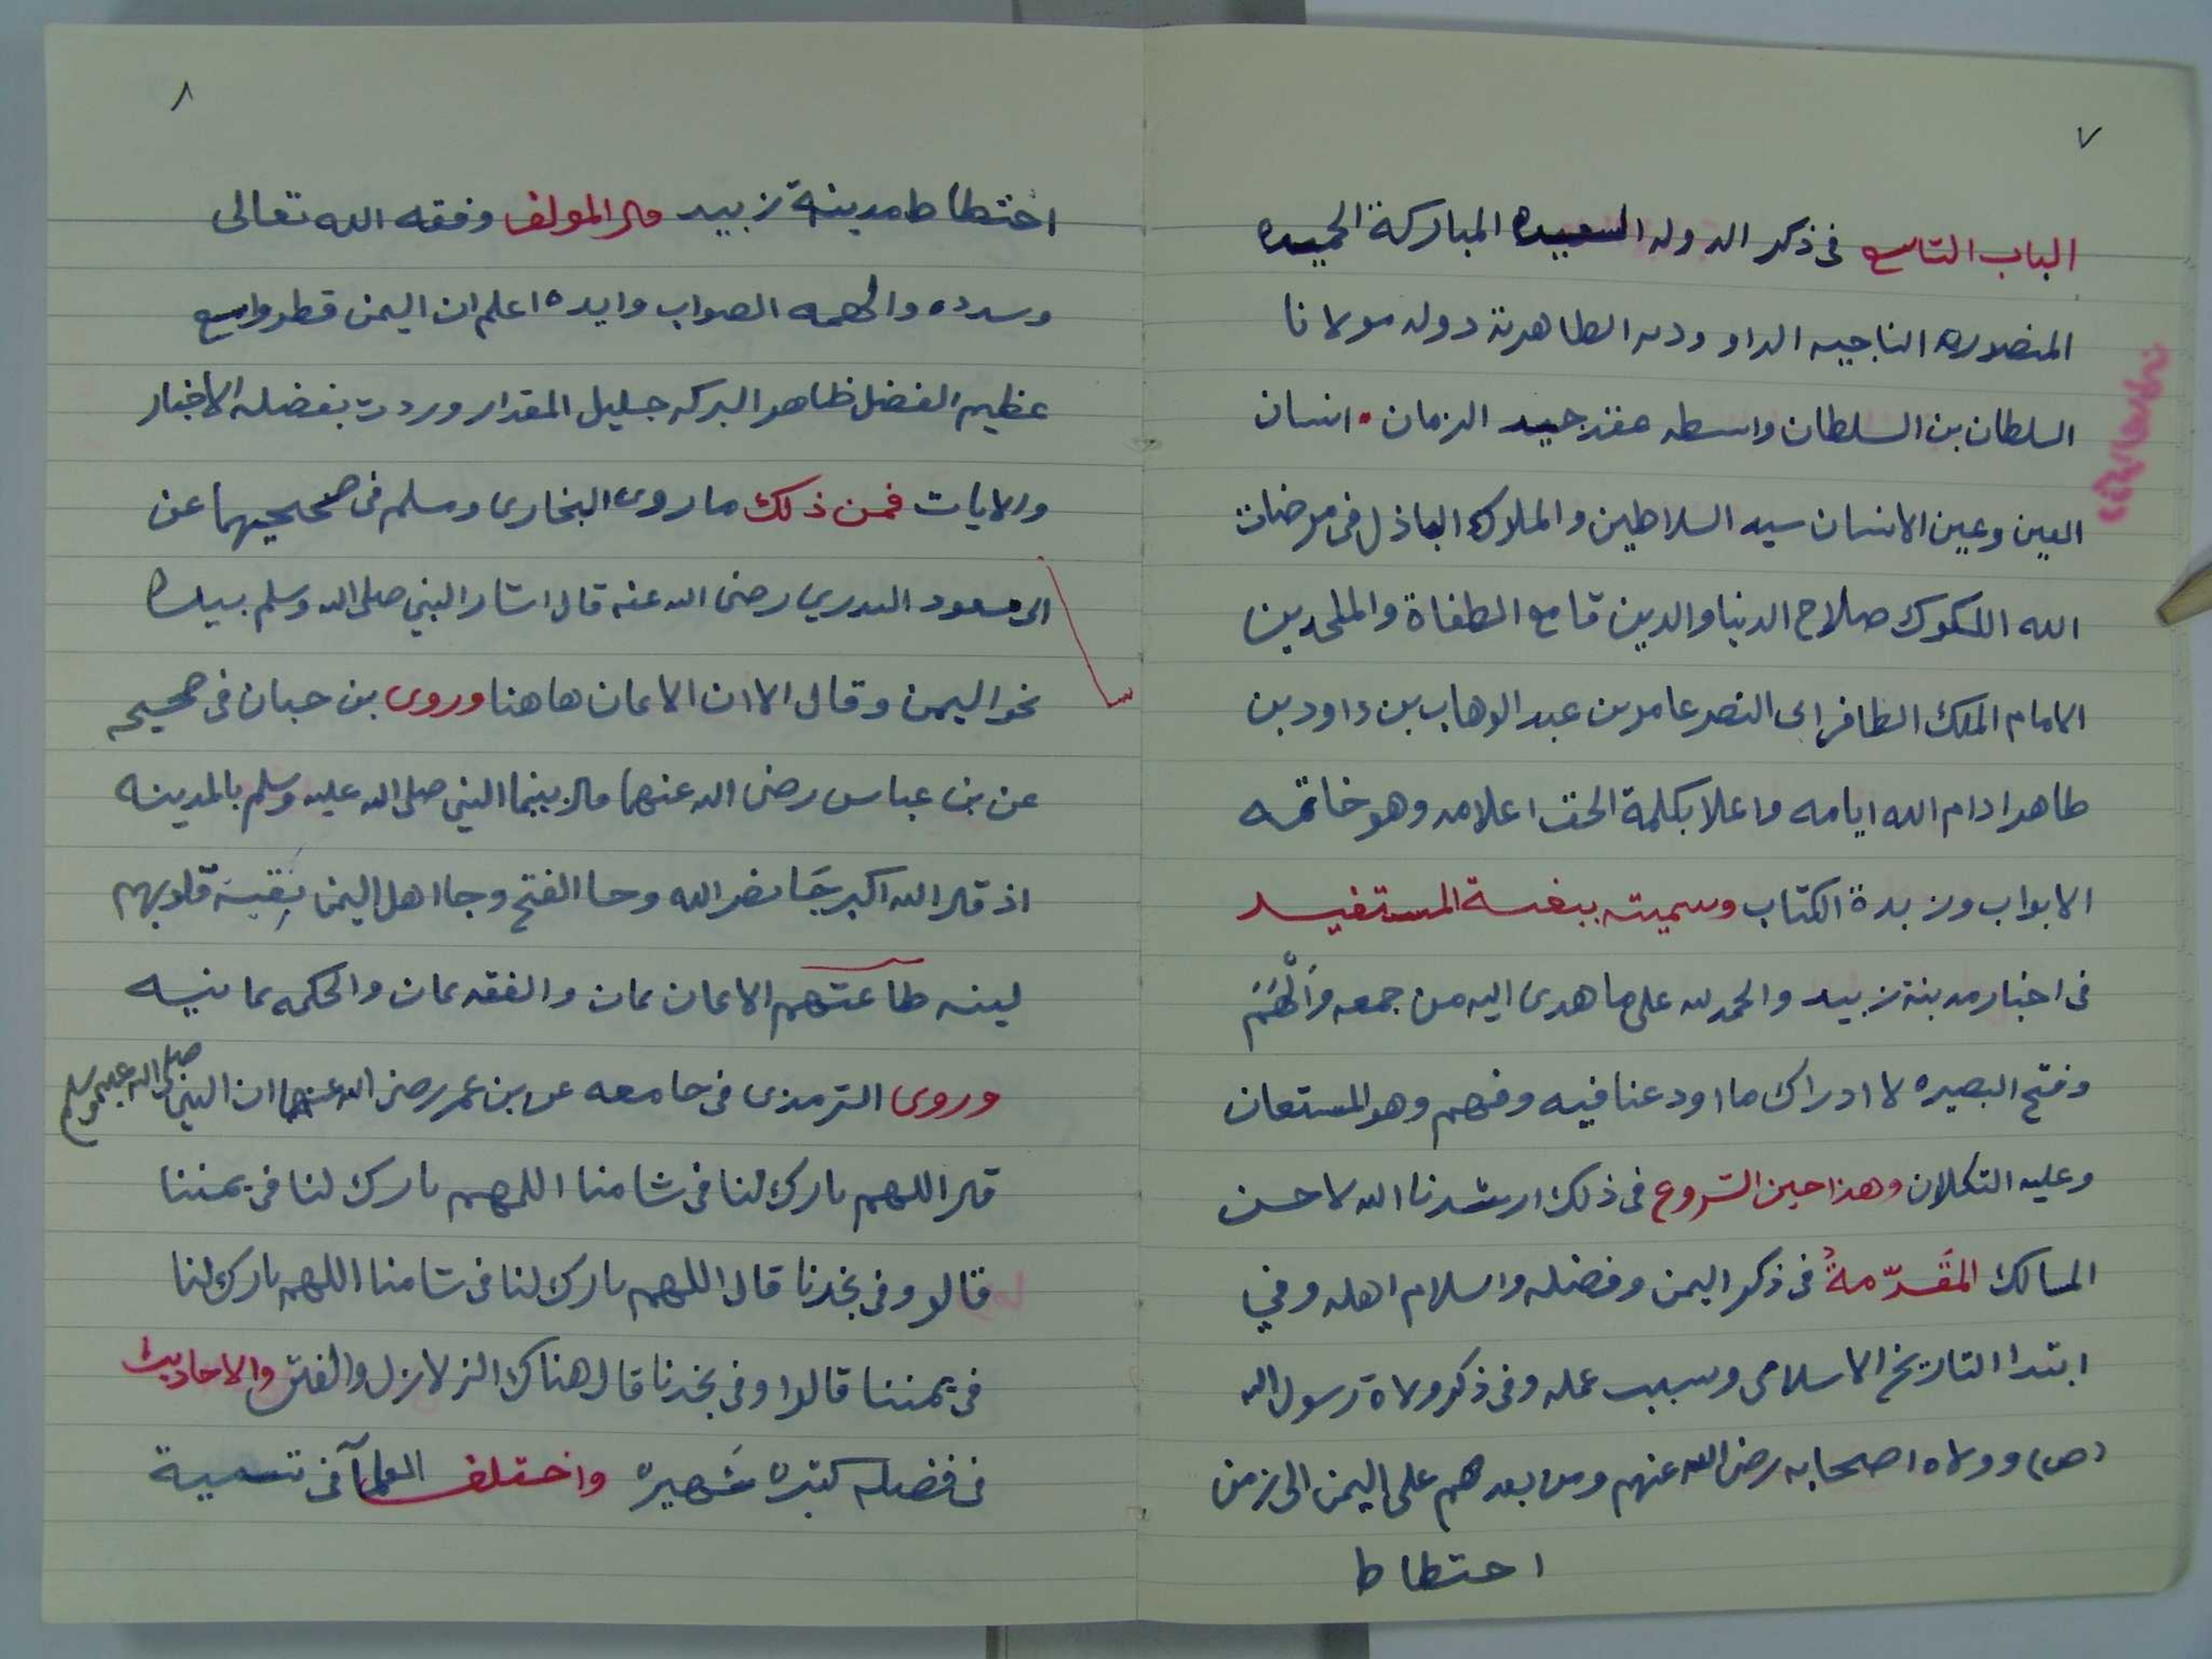 ٧
الباب التاسع فى ذكر الدوله السعيده المباركة الحميده
المنصوره الناجيه الداوديه الطاهرية دوله مولانا
السلطان بن السلطان واسطه عقد جيد الزمان • انسان
العين وعين الانسان سيد السلاطين والملوك الباذل فى مرضات
الله اللكوك صلاح الدنيا والدين قامع الطغاة والملحدين
الامام الملك الظافر ابى النصر عامر بن عبد الوهاب بن داود بن
طاهر ادام الله ايامه واعلا بكلمة الحق اعلامه وهو خاتمه
الابواب وزبدة الكتاب وسميته ببغية المستفيد
فى اخبار مدينة زبيد والحمد لله على ما هدى اليه من جمعه وَأَلْهَمَ
وفتح البصيره لادراك ما اودعنا فيه وفهم وهو المستعان
وعليه التكلان وهذا حين الشروع فى ذلك ارشدنا الله لاحسن
المسالك المقَدّمةُ فى ذكر اليمن وفضله واسلام اهله وفي
ابتدا التاريخ الاسلامى وسبب عمله وفى ذكر ولاة رسول الله
(ص) وولاه اصحابه رضى الله عنهم ومن بعدهم على اليمن الى زمن
احتطاط
٨
اختطاط مدينة زبيد قال المولف وفقه الله تعالى
وسدده والهمه الصواب وايده اعلم ان اليمن قطر واسع
عظيم الفضل ظاهر البركه جليل المقدار وردت بفضله الاخبار
والايات فمن ذلك ما روى البخارى ومسلم فى صحيحيهما عن
ابى مسعود البدري رضى الله عنه قال اشار النبي صلى الله وسلم بيده
نحو اليمن وقال الا ان الايمان هاهنا وروى بن حبان فى صحيحه
عن بن عباس رضى الله عنهما قال بينما النبي صلى الله عليه وسلم بالمدينه
اذ قال الله اكبر جَا نصر الله وجا الفتح وجا اهل اليمن نقية قلوبهم
لينه طاعتهم الايمان يمان والفقه يمان والحكمه يمانيه
وروى الترمذى فى جامعه عن بن عمر رضى الله عنهما ان النبي صلى الله عليه وسلم
قال اللهم بارك لنا فى شامنا اللهم بارك لنا فى يمننا
قالو وفى نجدنا قال اللهم بارك لنا فى شامنا اللهم بارك لنا
فى يمننا قالوا وفى نجدنا قال هناك الزلازل والفتن والاحاديث
فى فضله كثيرة شَهيرة واختلف العلمآ فى تسمية